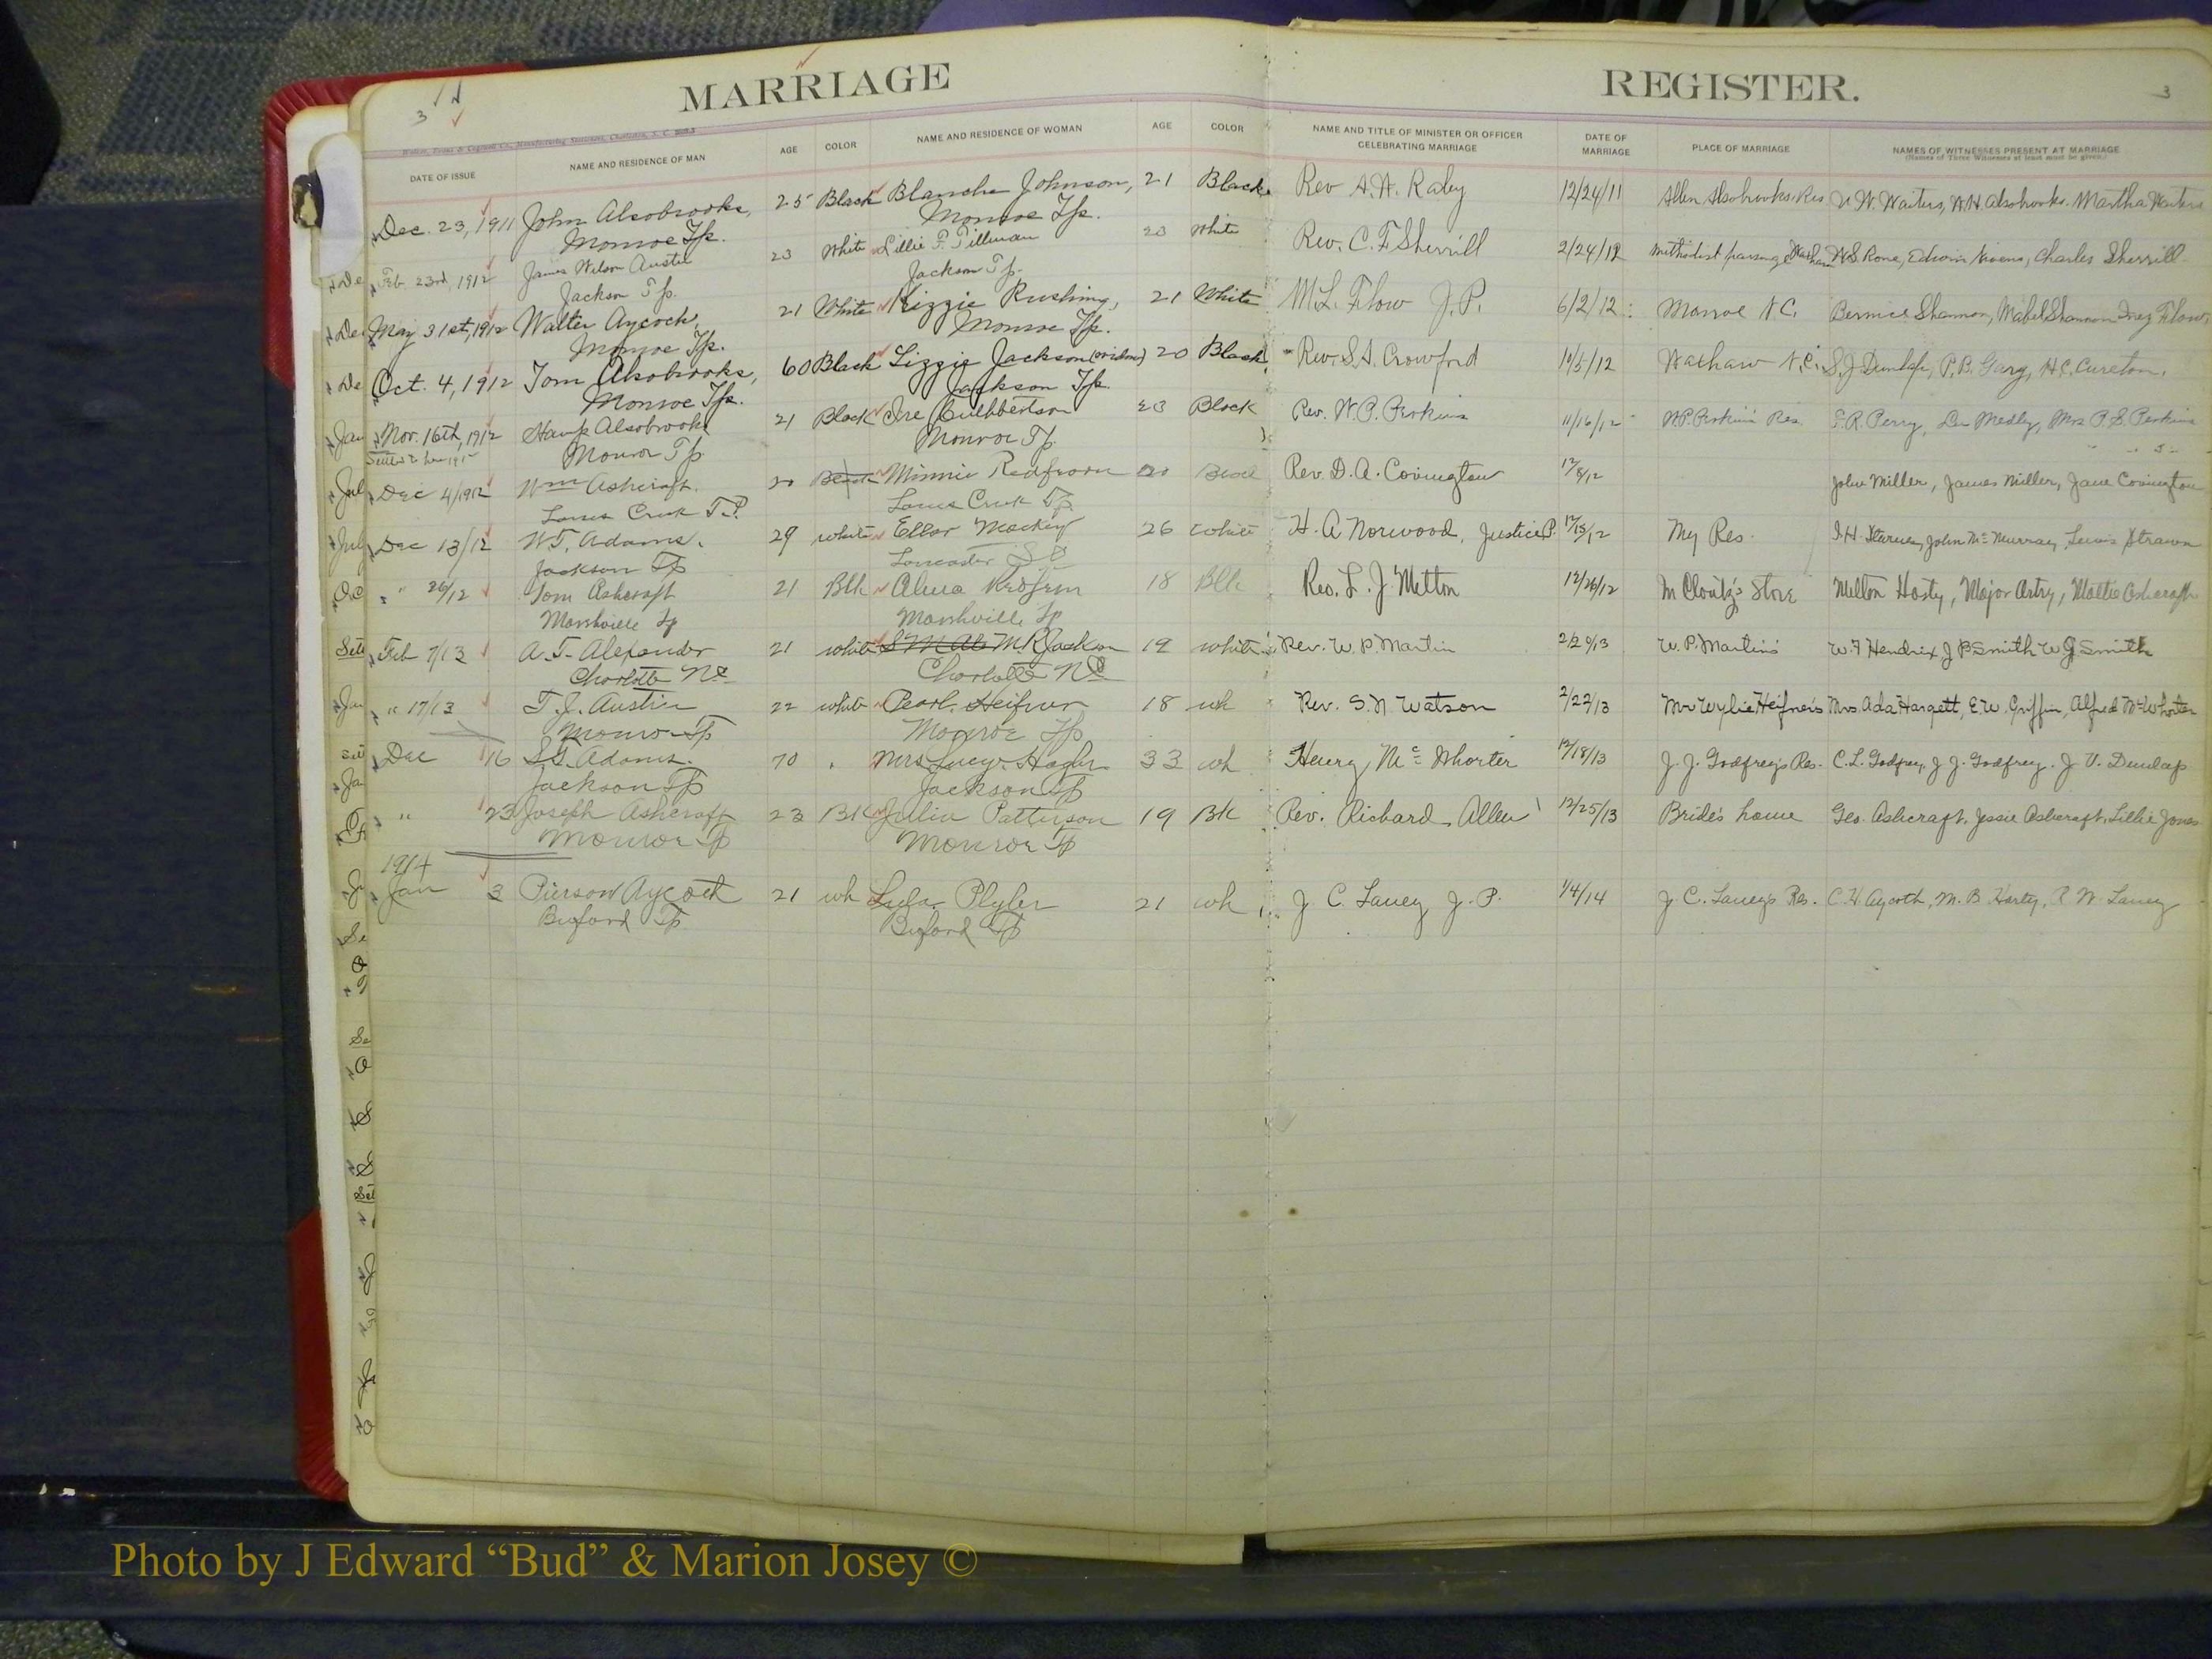 MARRIAGE REGISTER.
3 3
DATE OF ISSUE NAME AND RESIDENCE OF MAN AGE COLOR NAME AND RESIDENCE OF WOMAN AGE COLOR NAME AND TITLE OF MINISTER OR OFFICER CELEBRATING MARRIAGE DATE OF MARRIAGE PLACE OF MARRIAGE NAMES OF WITNESSES PRESENT AT MARRIAGE
(Names of Three Witnesses at least must be given.)
Dec. 23, 1911 John Alsobrooks, 25 Black Blanche Johnson, 21 Black Rev A.W. Raby 12/24/11 Allen Alsobrooks Res Martha Waiters
Monroe Tp. Monroe Tp.
Feb. 23rd, 1912 James Wilson Austin 23 White Lillie P. Tillman 20 White Rev. C. F. Sherrill 2/24/12 Methodist parsonage W.S. Rone, Edwin Nivens, Charles Sherrill
Jackson Tp. Jackson Tp.
May 31st, 1912 Walter Aycock, 21 White Lizzie Rushing, 21 White M.L. Flow J.P. 6/2/12 Monroe N.C. Bernice Shannon, Mabel Shannon Inez Flow
Monroe Tp. Monroe Tp.
Oct. 4, 1912 Tom Alsobrooks, 60 Black Lizzie Jackson (widow) 20 Black Rev. S.A. Crowford 10/5/12 Waxhaw N.C. S.J. Dunlap, P.B. Gary, H.C. Cureton.
Monroe Tp. Jackson Tp.
Nov. 16th, 1912 Hamp Alsobrooks 21 Black Cuthbertson 23 Black Rev. W.P. Perkins 11/16/12 W.P. Perkins Res. E.R. Perry, Medley, Mrs P.S. Perkins
Monroe Tp Monroe Tp.
Dec 4/1912 Wm Ashcraft. 20 Black Minnie Redfearn 20 Black Rev. D.A. Covington 12/8/12 John Miller, James Miller, Jane Covington
Lanes Creek T.P. Lanes Creek Tp.
Dec 13/12 W.T. Adams. 29 white Ellar Mackey 26 white H. A Norwood, Justice P. 12/15/12 My Res. John McMurray, Lewis Strawn
Jackson Tp Lancaster S C
" 26/12 Tom Ashcraft 21 Blk Alma Redfern 18 Blk Rev. L. J. Melton 12/26/12 McClontz's Store Melton Hasty, Major Artry, Mattie Ashcraft
Marshville Tp Marshville Tp
Feb 7/13 A.T. Alexander 21 white M R Jackson 19 white Rev. W. P. Martin 2/20/13 W. P. Martin's W. F Hendrix J B Smith W J Smith
Charlotte NC Charlotte NC
" 17/13 T. J. Austin 22 white Pearl Heifner 18 wh Rev. S. N Watson 2/22/13 Mr Wylie Heifner's Mrs. Ada Hargett, E.W. Griffin, Alfred McWhorter
Monroe Tp Monroe Tp
Dec 16 S.G. Adams. 70 Mrs Lucy Hagler 33 wh Henry McWhorter 12/18/13 J. J. Godfrey's Res. C.L. Godfrey, J J. Godfrey. J V. Dunlap
Jackson Tp Jackson Tp
" 23 Joseph Ashcraft 23 BK Julia Patterson 19 BK Rev. Richard Allen 12/25/13 Bride's home Geo. Ashcraft, Jessie Ashcraft, Lillie Jones
Monroe Tp Monroe Tp
1914
Jan 3 Pierson Aycoth 21 wh Lula Plyler 21 wh J. C. Laney J. P. 1/4/14 J. C. Laney's Res. C. H. Aycoth, M. B. Harty, R W. Laney
Buford Tp Buford Tp
Photo by J Edward “Bud” & Marion Josey ©